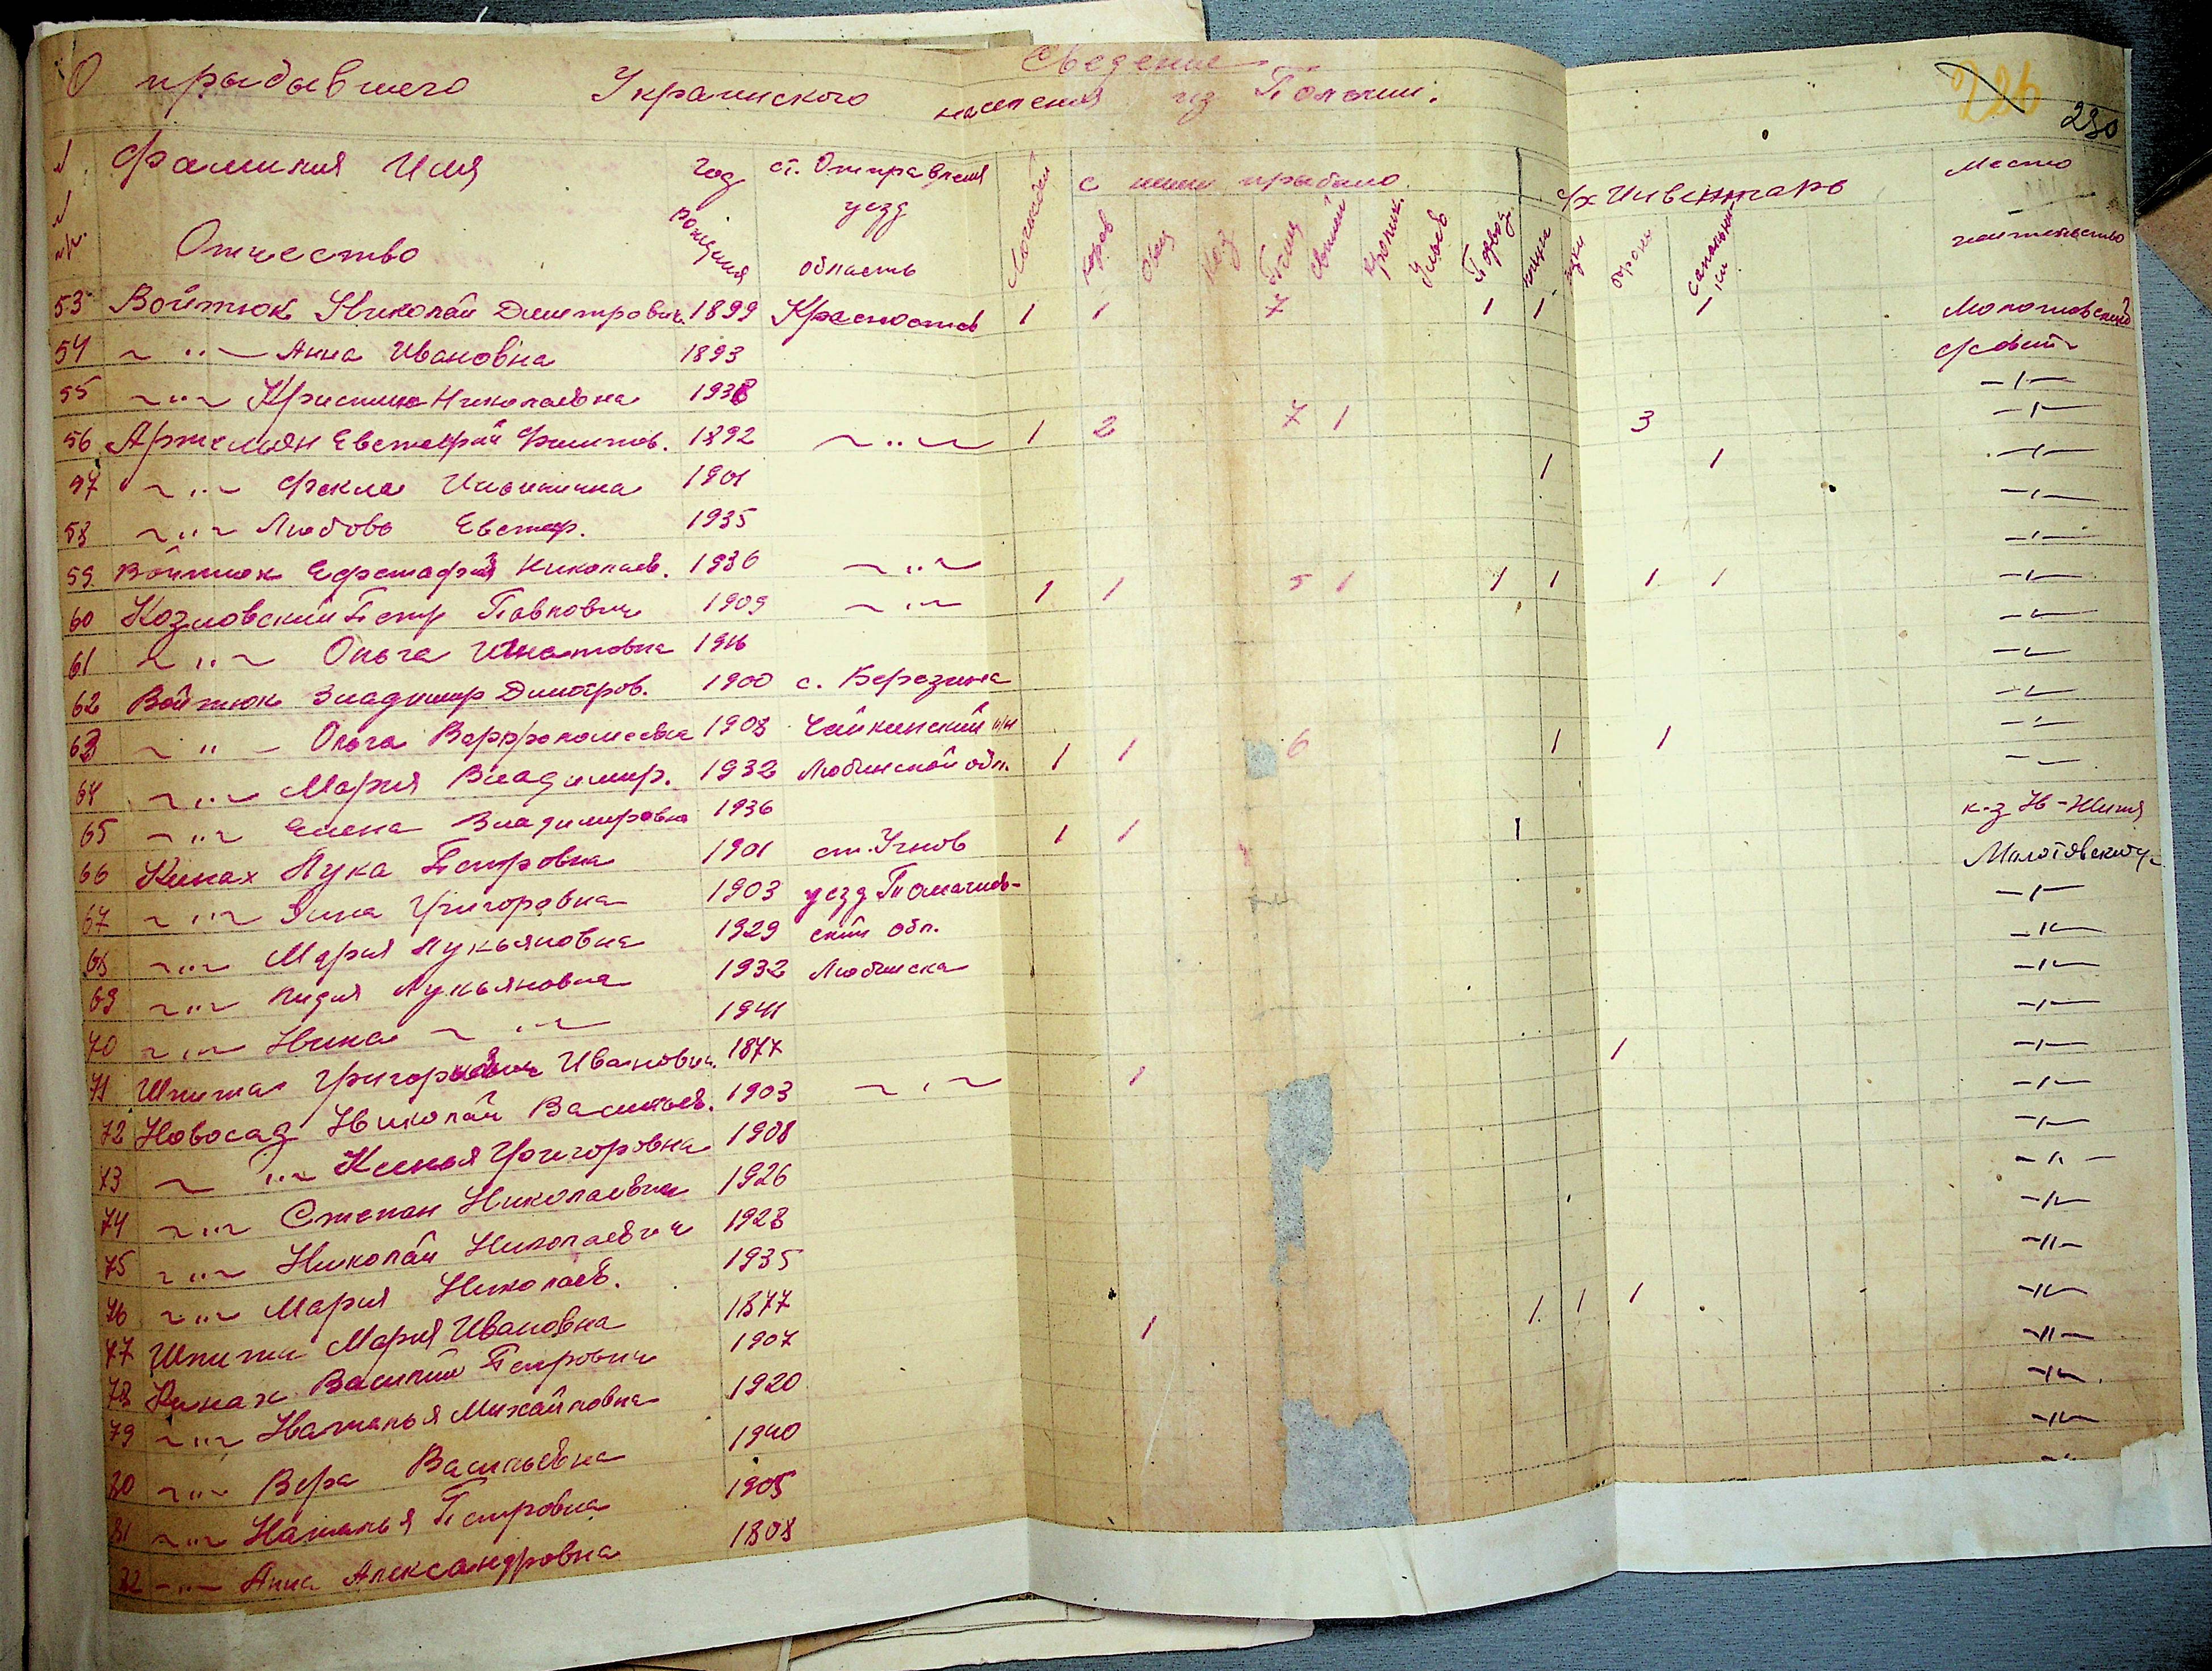 Сведение
О прыбывшего Украинского населения из Польши.
226
230
Фамилия Имя Отчество
год рождения
ст. Отправления уезд область
Лошадей
с ними прыбыло
коров Овец Коз Птица Свиней Кролик. Ульев Подвод.
с/х Инвентарь
плуги бороны
Место жительство
53 Войтюк Николай Дмитрович. 1899 Красностав 1 1 7 1 1 1 Молотовский
54 ~ " ~ Анна Ивановна 1893 с/совет
55 ~ " ~ Кристина Николаевна 1938 —"—
56 Артемюк Евстафий Филипов. 1892 ~ " ~ 1 2 7 1 3 —"—
57 ~ " ~ Фекла Ильинична 1901 1 1 —"—
58 ~ " ~ Любовь Евстаф. 1935 —"—
59 Войтюк Ефстафий Николаев. 1936 ~ " ~ —"—
60 Козловский Петр Павлович 1909 ~ " ~ 1 1 5 1 1 1 1 1 —"—
61 ~ " ~ Ольга Игнатовна 1916 —"—
62 Войтюк Владимир Дмитров. 1900 с. Березина —"—
63 ~ " ~ Ольга Варфоломеевна 1908 —"—
64 ~ " ~ Мария Владимир. 1932 Любинской обл. 1 1 6 1 1 —"—
65 ~ " ~ Елена Владимировна 1936 к-з Нв-Життя
66 Кинах Лука Петровна 1901 ст. Угнов 1 1 1 Молотовский
67 ~ " ~ Анна Григоровна 1903 уезд Томашов- —"—
68 ~ " ~ Мария Лукьяновна 1929 ский обл. —"—
69 ~ " ~ Лидия Лукьяновна 1932 Любинска —"—
70 ~ " ~ Нина ~ " ~ 1941 —"—
71 Шпита Григорович Ивановна 1877 1 —"—
72 Новосад Николай Васильев. 1903 ~ " ~ 1 —"—
73 ~ " ~ Ксенья Григоровна 1908 —"—
74 ~ " ~ Степан Николаевич 1926 —"—
75 ~ " ~ Николай Николаевич 1928 —"—
76 ~ " ~ Мария Николаев. 1935 —"—
77 Шпита Мария Ивановна 1877 —"—
78 Кинах Василий Петрович 1907 1 1 1 1 —"—
79 ~ " ~ Наталья Михайловна 1920 —"—
80 ~ " ~ Вера Васильевна 1940 —"—
81 ~ " ~ Наталья Петровна 1905
82 ~ " ~ Анна Александровна 1808